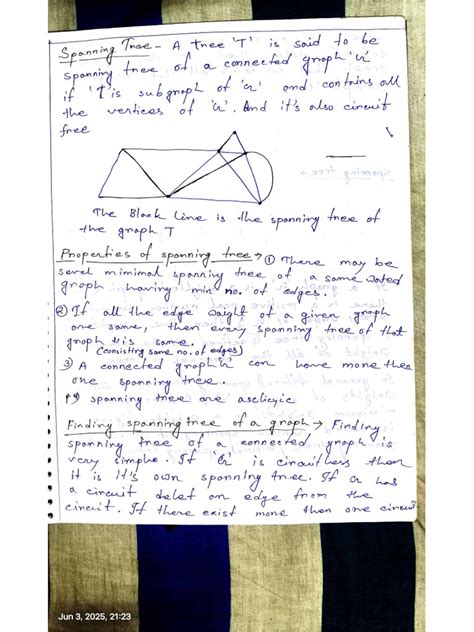 Spanning Tree - A tree 'T' is said to be
spanning tree of a connected graph 'G'
if 'T' is subgraph of 'G' and contains all
the vertices of 'G'. And it's also circuit
free
The Black Line is the spanning tree of
the graph T
Properties of spanning tree → ① There may be
several minimal spanning tree of a same
graph having min no. of edges.
② If all the edge waight of a given graph
are same, then every spanning tree of that
graph is same.
(consisting same no. of edges)
3) A connected graph 'G' can have more then
one spanning tree.
4) spanning tree are
Finding spanning tree of a graph → Finding
spanning tree of a connected graph is
very simple. If 'G' is then
it is it's own spanning tree. If G has
a circuit delet an edge from the
circuit. If there exist more then one circuit
Jun 3, 2025, 21:23